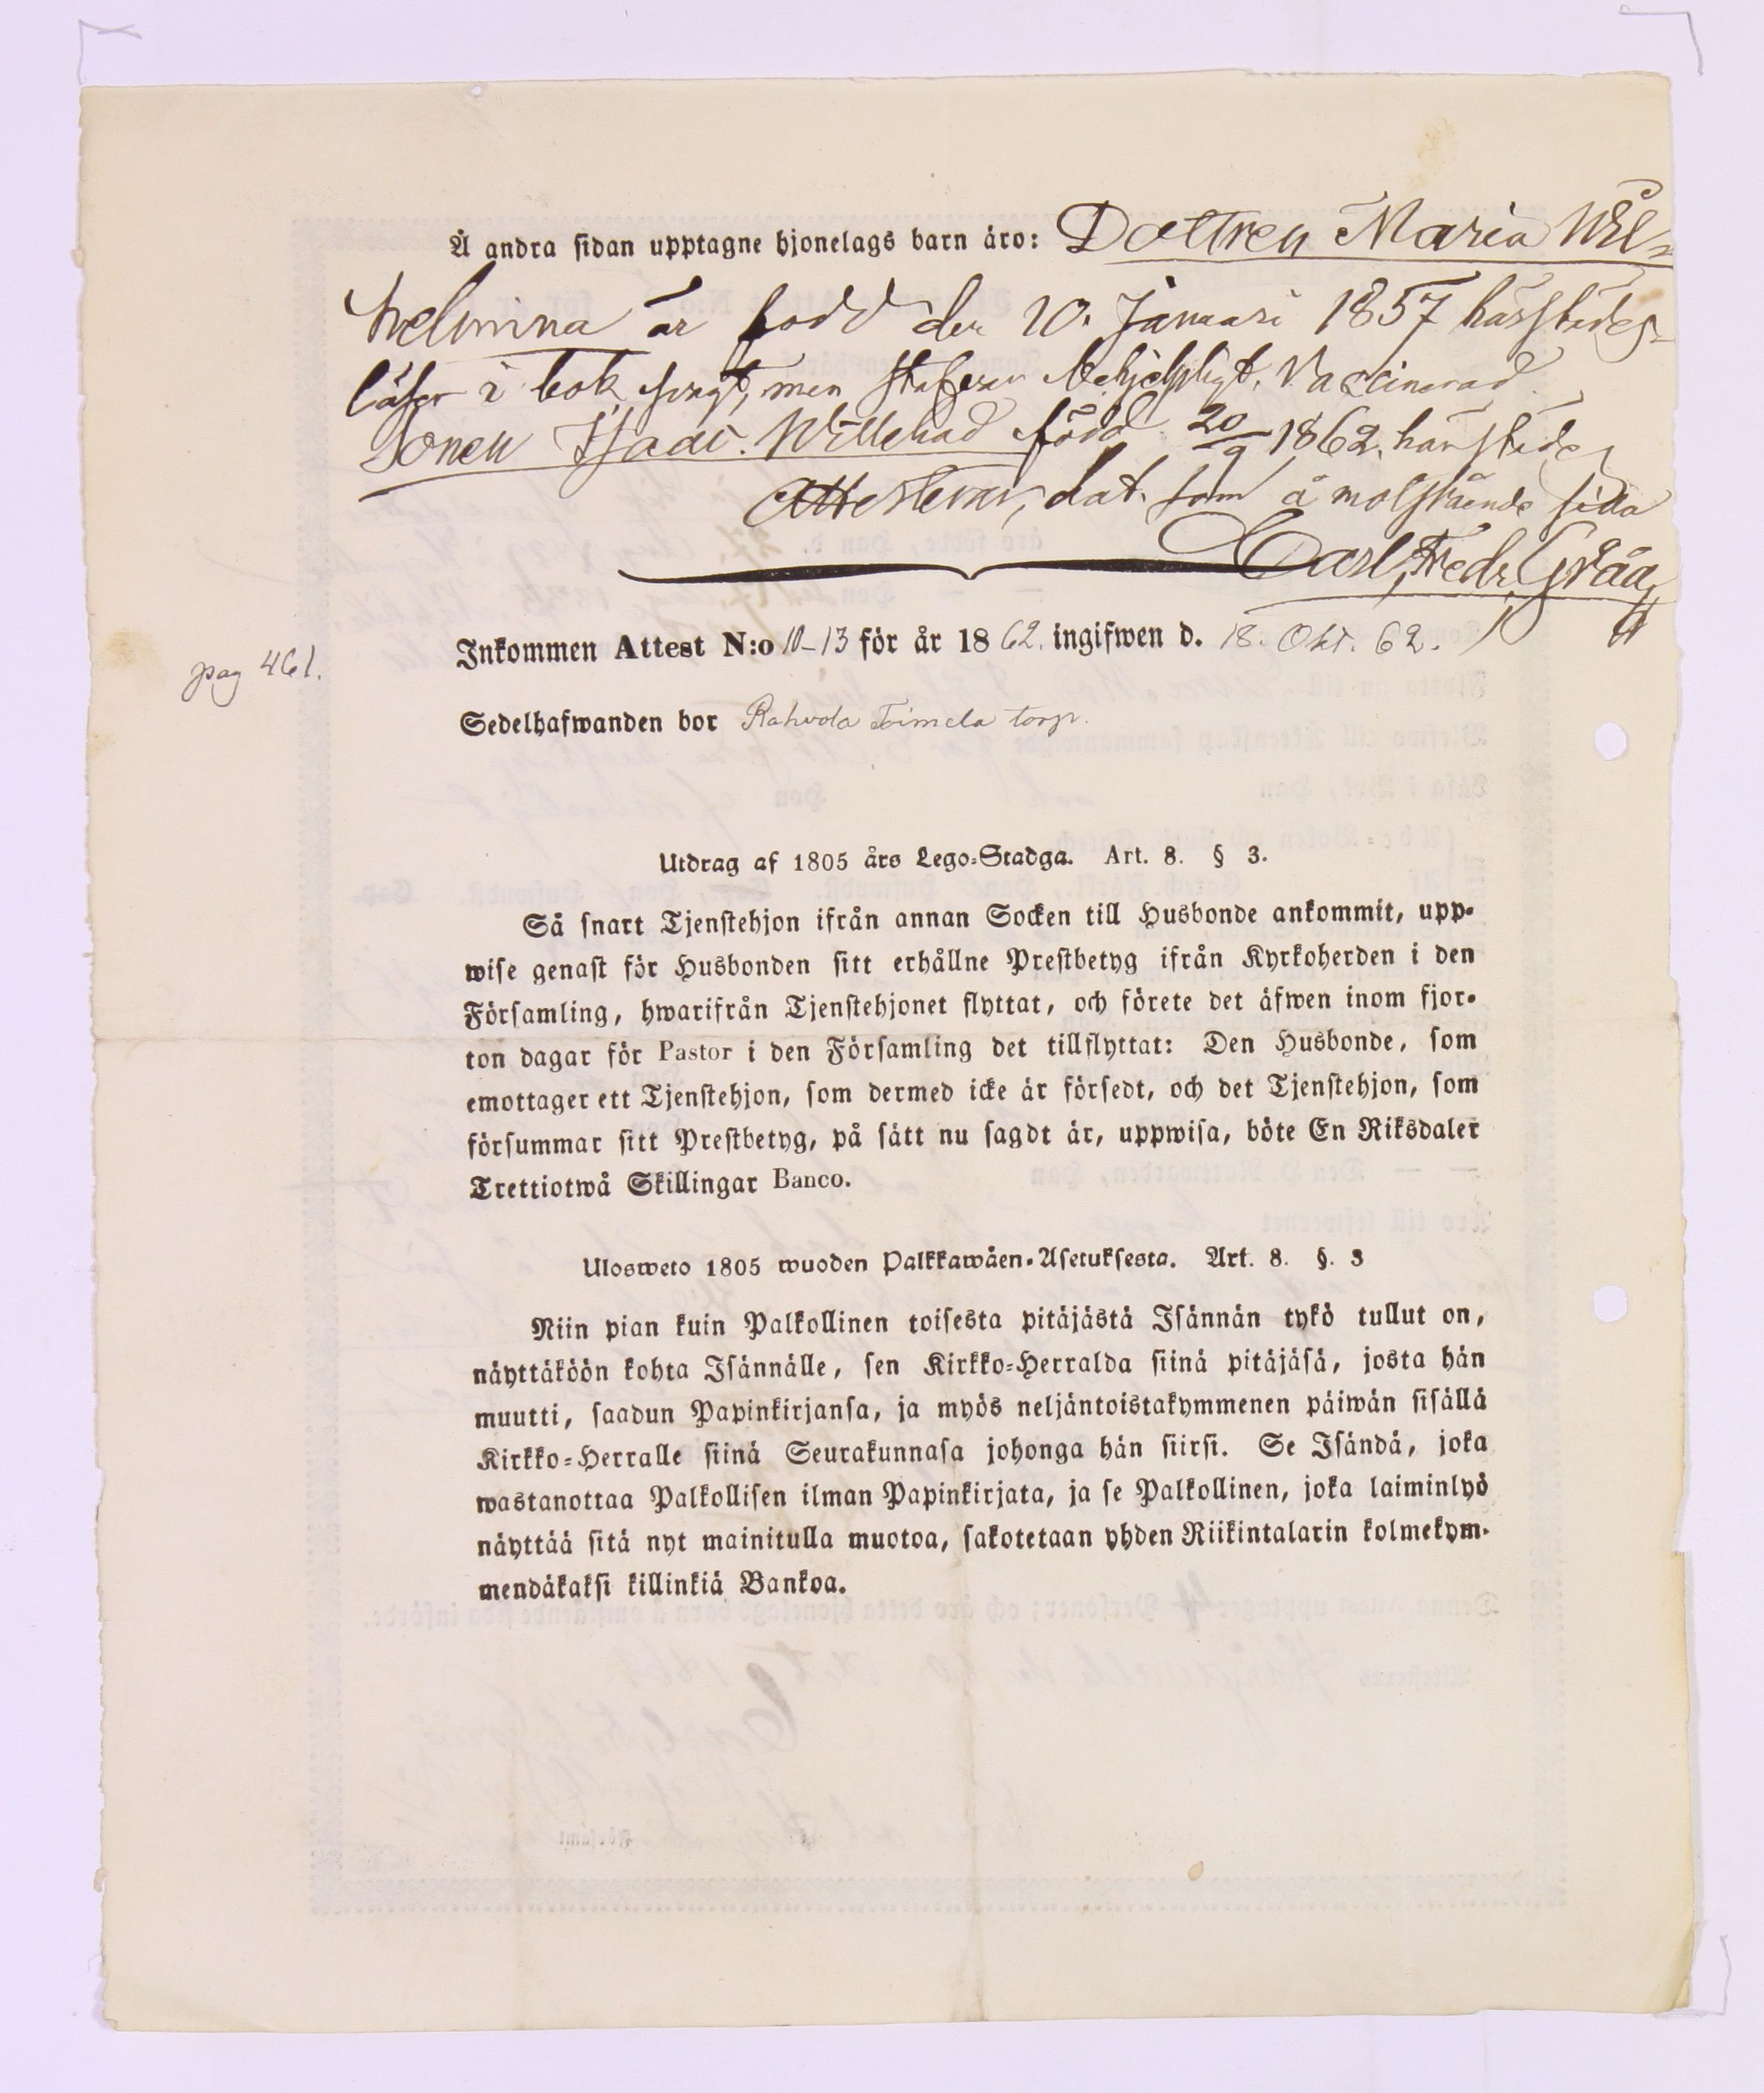 Å andra sidan upptagne hjonelags barn äro: Dottren Maria Wil-
helmina är född den 10. Januari 1857 härstädes
läser i bok svagt, men stafvar behjelpligt. Vaccinerad.
Sonen Isaac Willehad född 20/9 1862. härstädes
Attesterar, dat. som å motstående sida
Carl Fredr. Gråå
Inkommen Attest N:o 10-13 för år 1862. ingifwen d. 18. Okt. 62.
pag 461.
Sedelhafwanden bor Rahvola Toimela torp.
Utdrag af 1805 års Lego-Stadga. Art. 8. § 3.
Så snart Tjenstehjon ifrån annan Socken till Husbonde ankommit, upp-
wise genast för Husbonden sitt erhållne Prestbetyg ifrån Kyrkoherden i den
Församling, hwarifrån Tjenstehjonet flyttat, och förete det äfwen inom fjor-
ton dagar för Pastor i den Församling det tillflyttat: Den Husbonde, som
emottager ett Tjenstehjon, som dermed icke är försedt, och det Tjenstehjon, som
försummar sitt Prestbetyg, på sätt nu sagdt är, uppwisa, böte En Riksdaler
Trettiotwå Skillingar Banco.
Ulosweto 1805 wuoden Palkkawäen-Asetuksesta. Art. 8. §. 3
Niin pian kuin Palkollinen toisesta pitäjästä Isännän tykö tullut on,
näyttäköön kohta Isännälle, sen Kirkko-Herralda siinä pitäjäsä, josta hän
muutti, saadun Papinkirjansa, ja myös neljäntoistakymmenen päiwän sisällä
Kirkko-Herralle siinä Seurakunnasa johonga hän siirsi. Se Isändä, joka
wastanottaa Palkollisen ilman Papinkirjata, ja se Palkollinen, joka laiminlyö
näyttää sitä nyt mainitulla muotoa, sakotetaan yhden Riikintalarin kolmekym-
mendäkaksi killinkiä Bankoa.